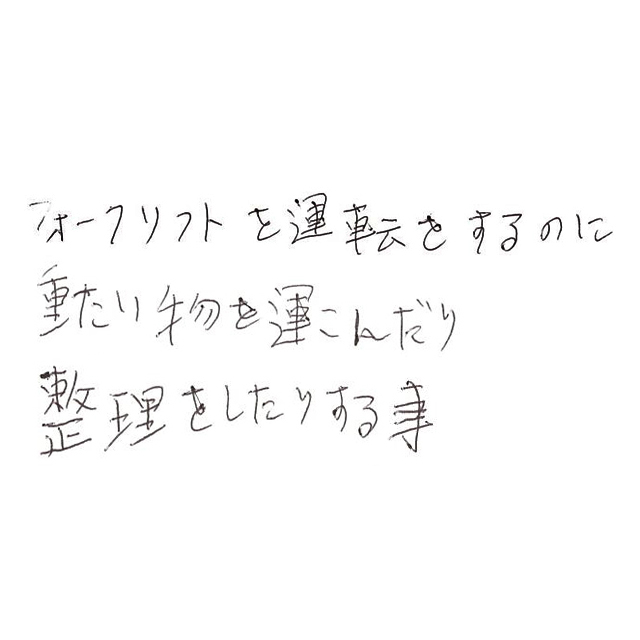 フォークリフトを運転をするのに
重たい物を運こんだり
整理をしたりする事